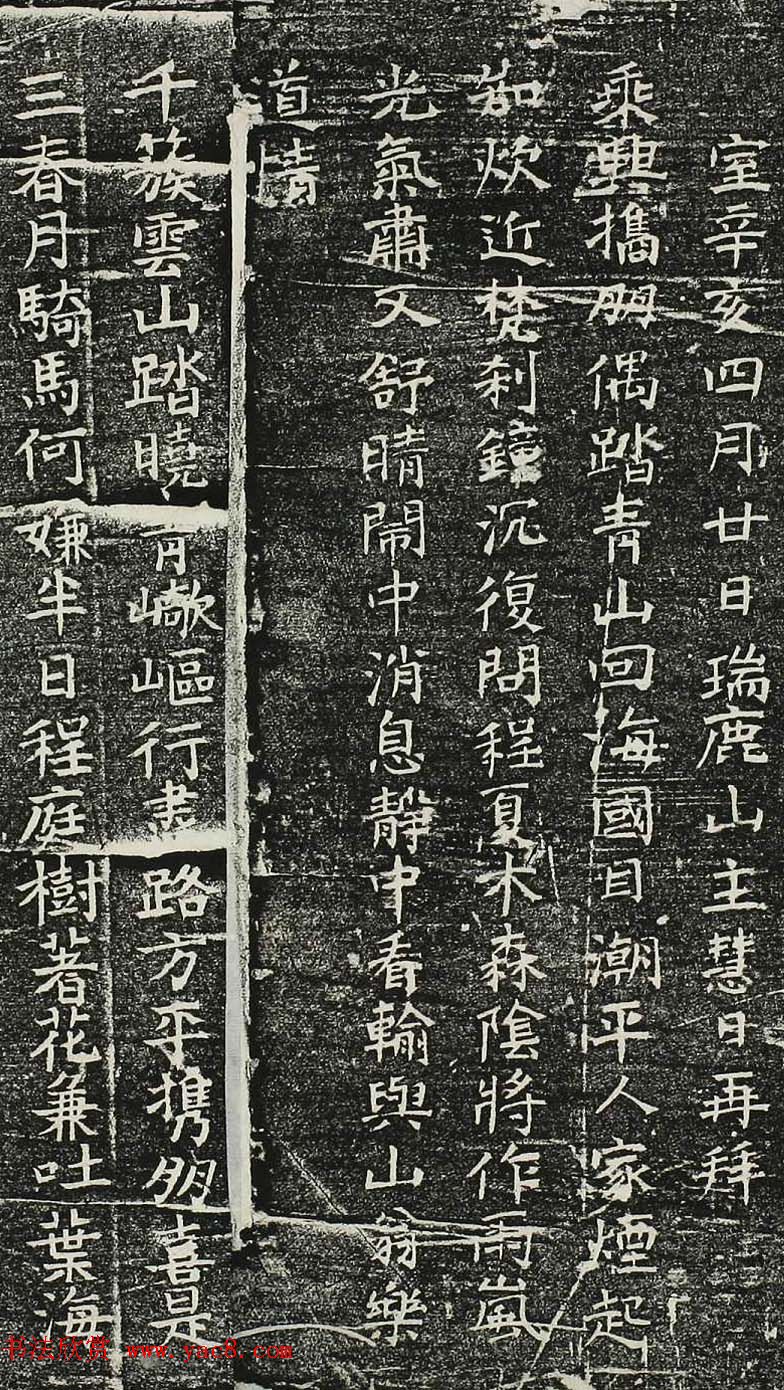 室辛亥四月廿日瑞鹿山主慧日再拜
乘興攜朋偶踏青山回海國目潮平人家煙起
炊近梵刹鐘沉復問程夏木森陰將作雨嵐
光氣肅又舒晴鬧中消息靜中看輸與山翁樂
道情
千簇雲山踏曉青崎嶇行盡路方平携朋喜是
三春月騎馬何嫌半日程庭樹著花兼吐葉海
书法欣赏 www.yac8.com